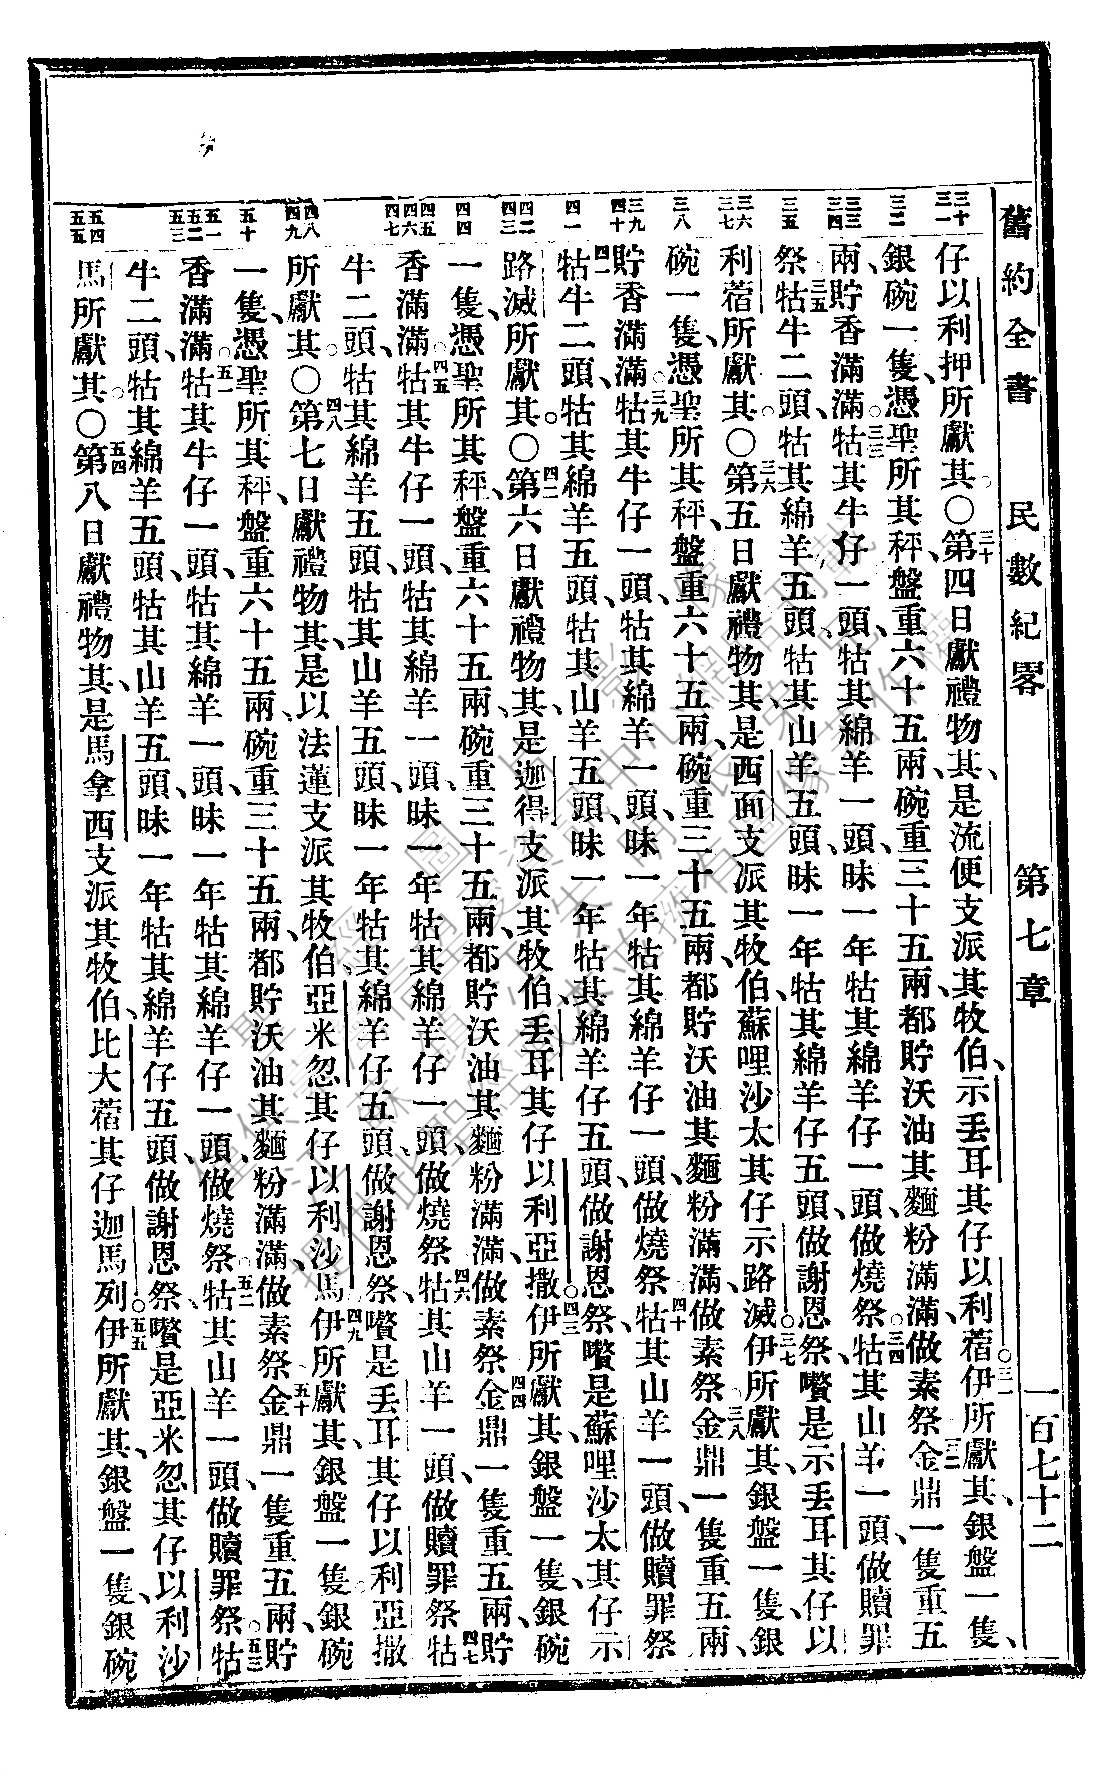 舊約全書 民數紀畧 第七章 一百七十二
三十 三一 三二 三三 三四 三五 三六 三七 三八 三九 四十 四一 四二 四三 四四 四五 四六 四七 四八 四九 五十 五一 五二 五三 五四 五五
仔以利押所獻其。〇三十第四日獻禮物其、是流便支派其牧伯、示丟耳其仔以利蓿伊所獻其、三一銀盤一隻、
銀碗一隻、憑聖所其秤、盤重六十五兩、碗重三十五兩、都貯沃油其麵粉滿滿、做素祭三二金鼎一隻重五
兩、貯香滿滿。三三牯其牛仔一頭、牯其綿羊一頭、昧一年牯其綿羊仔一頭、做燒祭。三四牯其山羊一頭、做贖罪
祭三五牯牛二頭、牯其綿羊五頭、牯其山羊五頭、昧一年牯其綿羊仔五頭、做謝恩祭、嚽是示丟耳其仔以
利蓿所獻其。〇三六第五日獻禮物其、是西面支派其牧伯、蘇哩沙太其仔示路滅伊所獻其、三七銀盤一隻、銀
碗一隻、憑聖所其秤、盤重六十五兩、碗重三十五兩、都貯沃油其麵粉滿滿、做素祭三八金鼎一隻重五兩、
貯香滿滿。三九牯其牛仔一頭、牯其綿羊一頭、昧一年牯其綿羊仔一頭、做燒祭、四十牯其山羊一頭、做贖罪祭
四一牯牛二頭、牯其綿羊五頭、牯其山羊五頭、昧一年牯其綿羊仔五頭、做謝恩祭、嚽是蘇哩沙太其仔示
路滅所獻其。〇四二第六日獻禮物其、是迦得支派其牧伯、丟耳其仔以利亞撒伊所獻其、四三銀盤一隻、銀碗
一隻、憑聖所其秤、盤重六十五兩、碗重三十五兩、都貯沃油其麵粉滿滿、做素祭四四金鼎一隻重五兩、貯
香滿滿。四五牯其牛仔一頭、牯其綿羊一頭、昧一年牯其綿羊仔一頭、做燒祭四六牯其山羊一頭、做贖罪祭四七牯
牛二頭、牯其綿羊五頭、牯其山羊五頭、昧一年牯其綿羊仔五頭、做謝恩祭、嚽是丟耳其仔以利亞撒
所獻其。〇四八第七日獻禮物其、是以法蓮支派其牧伯、亞米忽其仔以利沙馬伊所獻其、四九銀盤一隻、銀碗
一隻、憑聖所其秤、盤重六十五兩、碗重三十五兩、都貯沃油其麵粉滿滿、做素祭五十金鼎一隻重五兩、貯
香滿滿。五一牯其牛仔一頭、牯其綿羊一頭、昧一年牯其綿羊仔一頭、做燒祭五二牯其山羊一頭做贖罪祭五三牯
牛二頭、牯其綿羊五頭、牯其山羊五頭、昧一年牯其綿羊仔五頭、做謝恩祭、嚽是亞米忽其仔以利沙
馬所獻其。〇五四第八日獻禮物其、是馬拿西支派其牧伯、比大蓿其仔迦馬列伊所獻其、五五銀盤一隻、銀碗